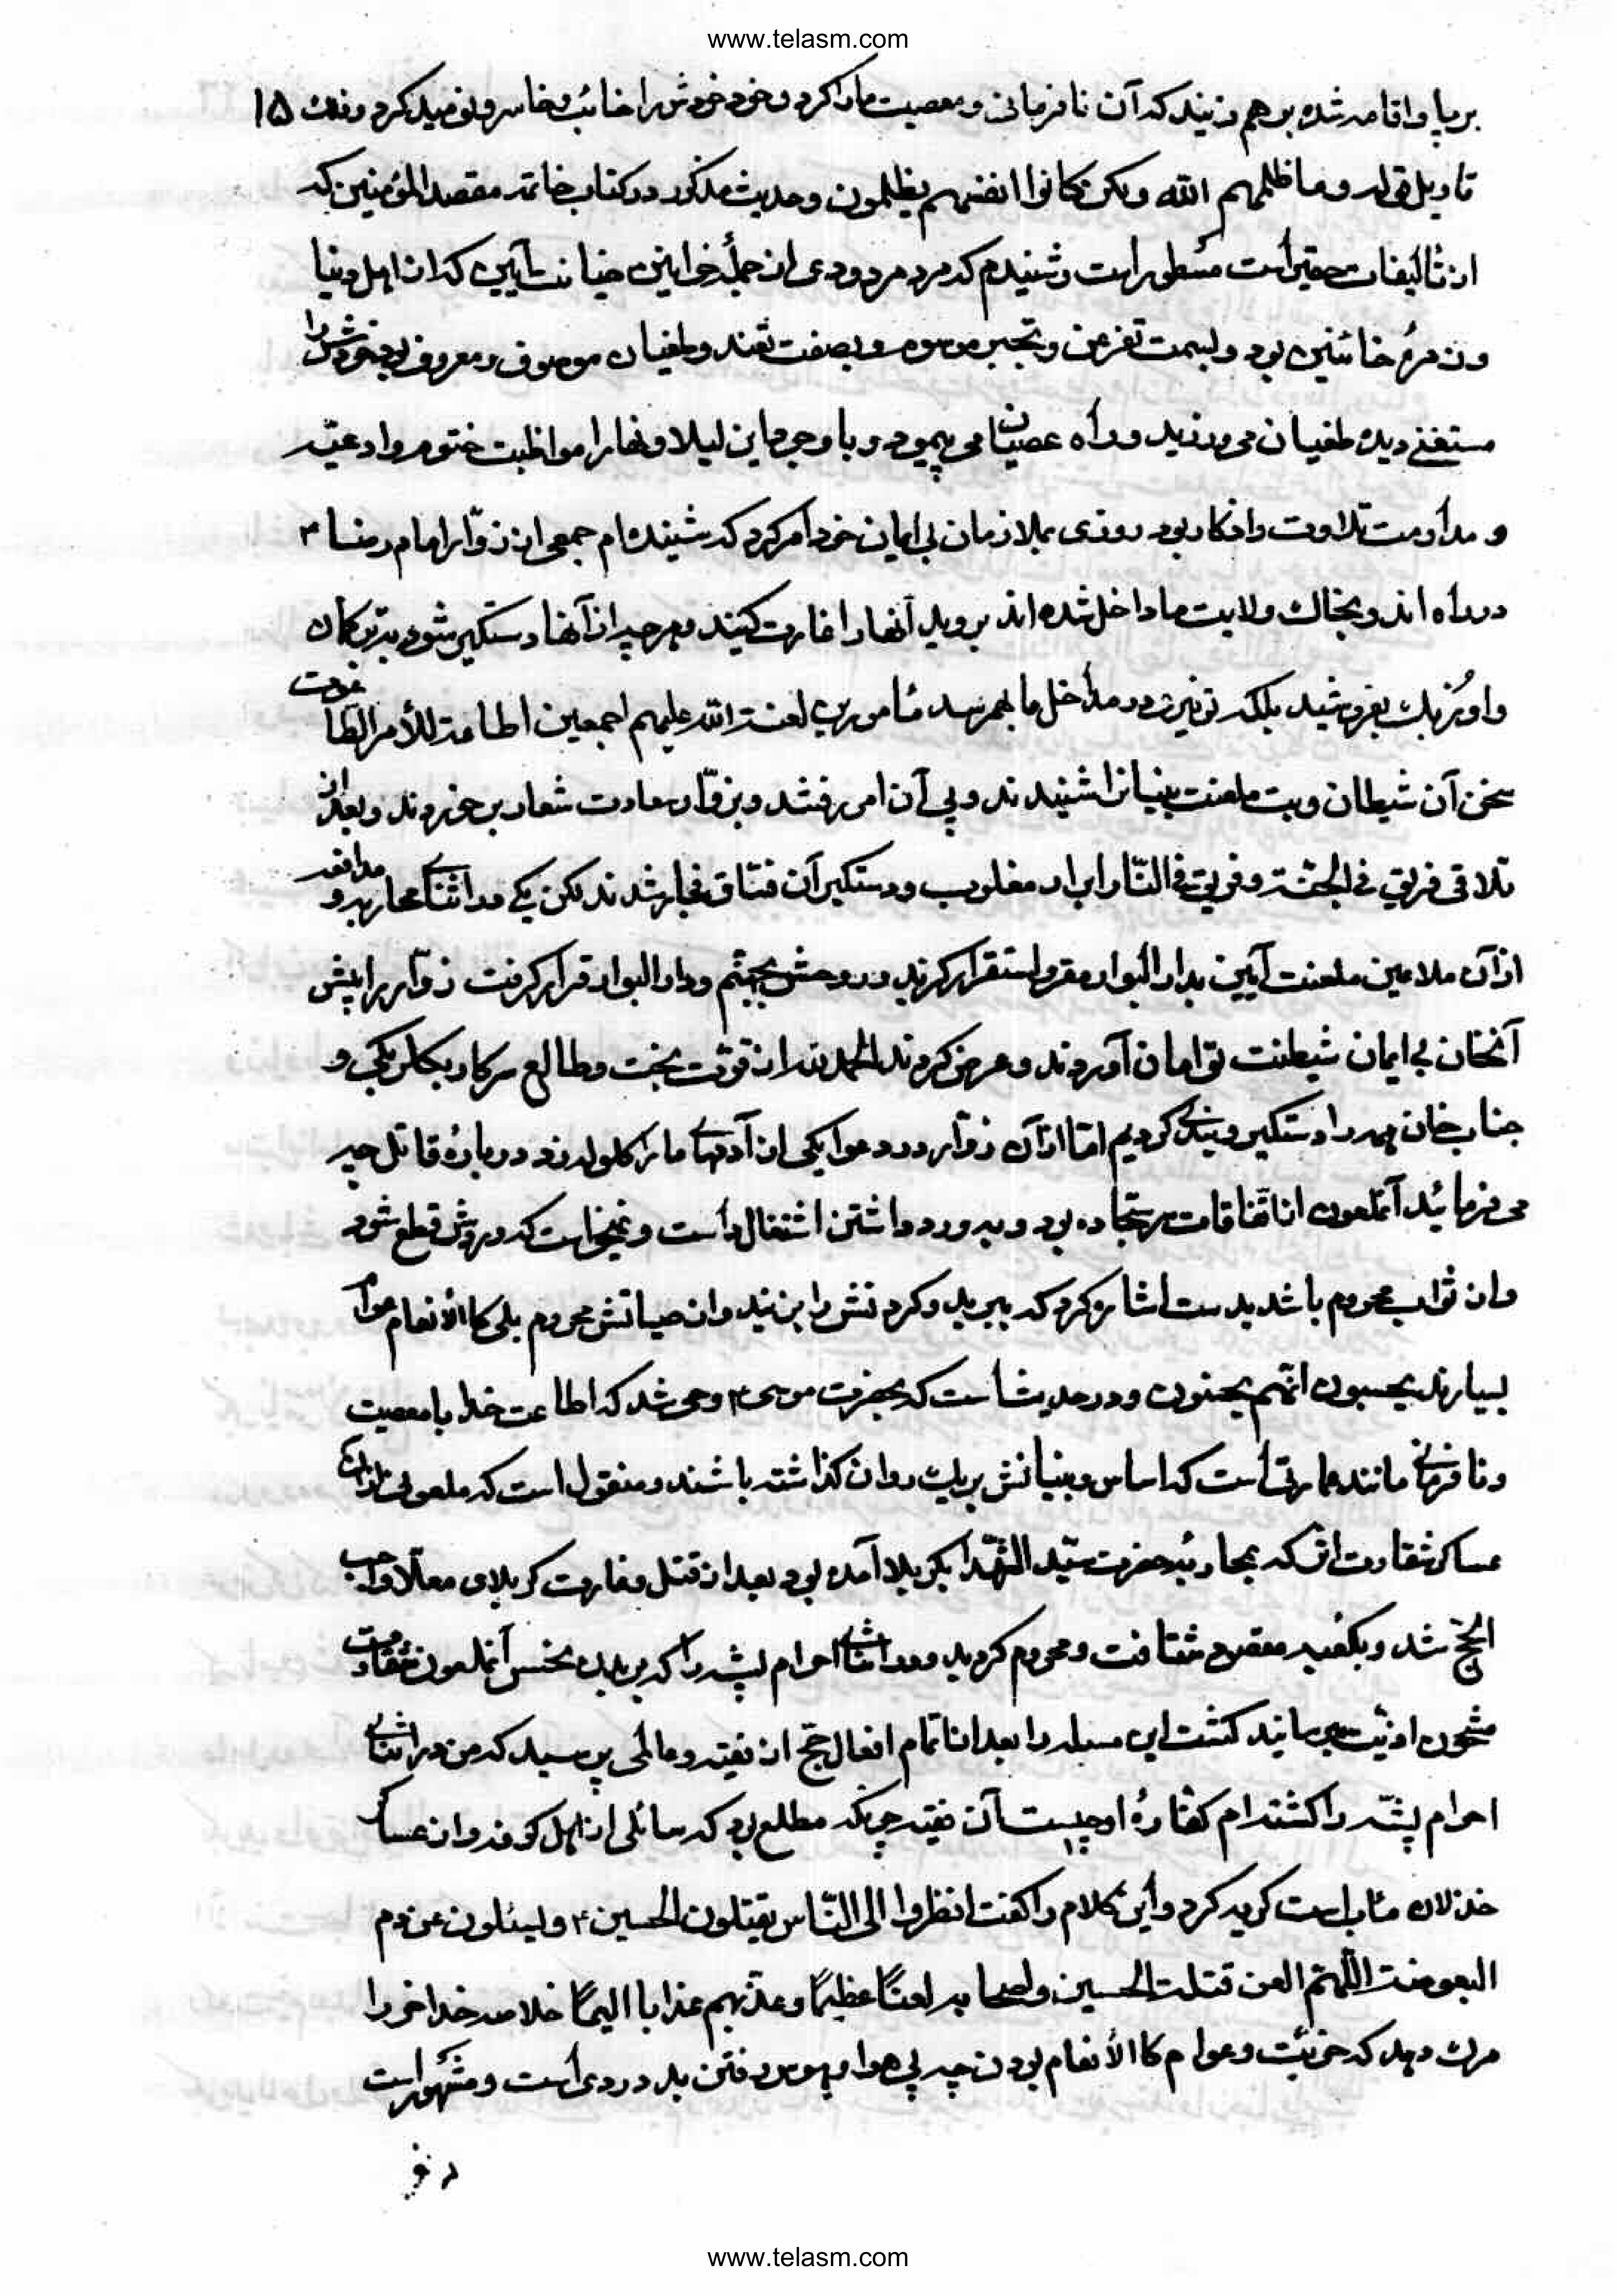 www.telasm.com
برپا و اقامه شده بر هم زنید که آن نافرمانی و معصیت ما را کرد و خود خودش را خائب و خاسر و نومید کرد ۱۵
تاویل قوله وما ظلمهم الله ولکن کانوا انفسهم یظلمون و حدیث مذکور در کتاب خاتمه مقصد المؤمنین که
از تألیفات حقیر است مسطور است و شنیدم که مرد مردودی از جملهٔ خوانین خیانت آیین که از اهل دنیا
و زمرهٔ خائنین بود و بسمت تفرعن و تجبر موسوم و بصفت و طغیان موصوف و معروف بود خودش را
مستغنی دیده طغیان می ورزید و راه عصیان می پیمود و با وجود این لیلا و نهارا مواظبت ختوم و ادعیه
و مداومت تلاوت و اذکار بود روزی بملازمان بی ایمان خود امر کرد که شنیده ام جمعی از زوّار امام رضا ۴
در راه اند و بخاک ولایت ما داخل شده اند بروید آنها را غارت کنید و هر چه از آنها دستگیر شود بترکمان
و اوزبک بفروشید بلکه در مداخل ما بهم رسد مأمورین لعنة الله علیهم اجمعین اطاعة للأمر الطاغوت
سخن آن شیطان و بت ملعنت بنیان را شنیدند و پی آن امر رفتند و بزوّار سعادت شعار بر خوردند و بعد از
تلاقی فریق فی الجنّة و فریق فی النّار ابرار مغلوب و دستگیر آن فسّاق فجار شدند لکن یکی در اثنای محاربه و مدافعه
از آن ملاعین ملعنت آیین بدار البوار مقر و استقرار گزید و روحش بجهنم و دار البوار قرار گرفت زوّار را پیش
آنخان بی ایمان شیطنت توامان آوردند و عرض کردند الحمد لله از قوّت بخت و طالع سرکار بیکلربکی و
جناب خان همه را دستگیر و بندی کردیم امّا از آن زوّار در دعوا یکی از آدمهای ما را گلوله زد در بارهٔ قاتل چه
می فرمائید آنملعون اتفاقا در سر سجاده بود و به ورد داشتن اشتغال داشت و نمیخواست که وردش قطع شود
و از ثواب محروم باشد بدست اشاره کرد که ببرید و گردنش را بزنید و از حیاتش محروم بلی کاالأنعام عوام
بسیارند یحسبون انّهم یحسنون و در حدیث است که بحضرت موسی ۴ وحی شد که اطاعت خدا با معصیت
و نافرمانی مانند عمارتی است که اساس و بنیانش بریک روان گذاشته باشند و منقول است که ملعونی از آن
عساکر شقاوت اثر که بمحاربهٔ حضرت سیّد الشّهدا بکربلا آمده بود بعد از قتل و غارت کربلای معلّا واجب
الحج شد و بکعبه مقصود شتافت و محروم گردید و در اثنای احرام پشه را که بر بدن نجس آنملعون شقاوت
مشحون اذیّت میرسانید کشت این مسئله را بعد از اتمام افعال حج از فقیه و عالمی پرسید که من در اثنای
احرام پشّه را کشته ام کفّارهٔ او چیست آن فقیه چونکه مطلع بود که سائلی از اهل کوفه و از عساکر
خذلان مئاب است گریه کرد و این کلام را گفت انظروا الی النّاس یقتلون الحسین ۴ و لیسئلون عن دم
البعوضة اللّهمّ العن قتلة الحسین و اصحابه لعنًا عظیمًا و عذّبهم عذابا الیمًا خلاصه خدا خود را
مرگ دهد که خریّت و عوام کاالأنعام بودن چه پی هوا و هوس رفتن بد دردی است و مشهور است
www.telasm.com